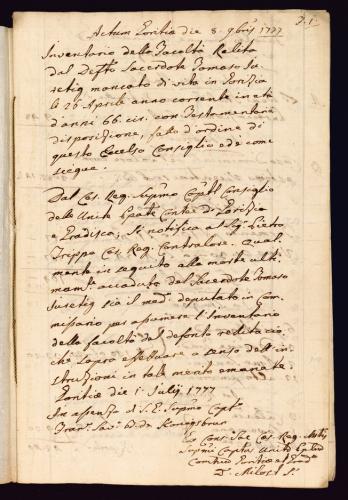 Actum Goritiæ die 8. 9bris 1777
Inventario della Facoltà Relita
dal Deffto Sacerdote Tomaso Su-
setig mancato di vita in Gorizia
li 26 Aprile anno corrente in età
d'anni 66. cir. con Testamentaria
disposizione, fatto d'ordine di
questo Eccelso Consiglio ed è come
seegue.
Dal Ces. Reg. Supmo Captl Consiglio
delle Unite Contee di Gorizia
e Gradisca; Si notifica al Sigr Pietro
Ces. Reg. Controlore. Qual-
mente in seguito alla morte ulti-
mamte accaduta del Sacerdote Tomaso
Susetig sia il medo deputato in Com-
missario per assumere l'Inventario
della facoltà del defonto relita; ciò,
che saprà effetuare a senso dell' in-
struzioni in tale mente emanate.
Goritiæ die 1 Julij 1777
In assenza di S. E. Supmo Capto
de Königsbrun
Ex Cons. Sac. Ces. Reg.
Supmi Capitus Unito
Comitus Goritiæ et